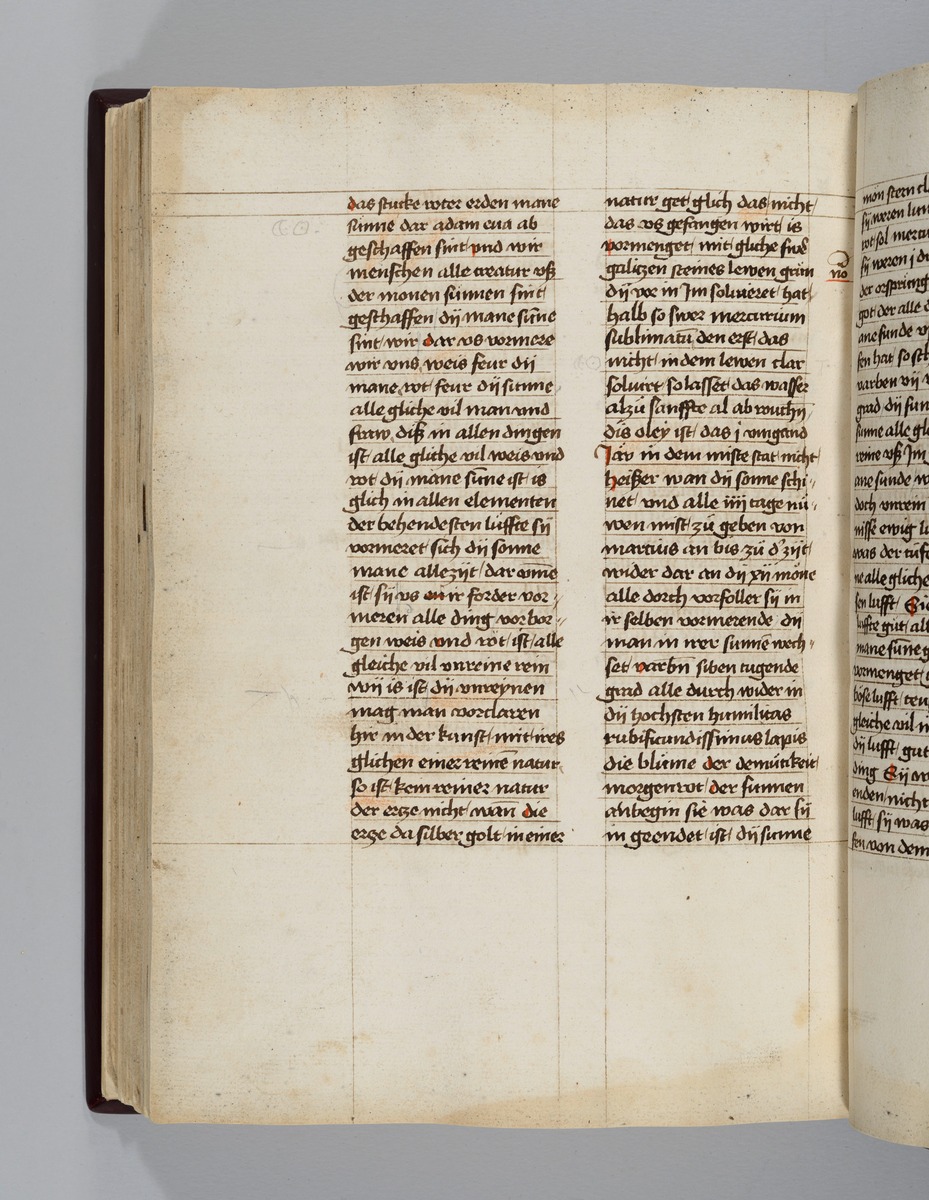 das stucke roter erden mane
sunne dar adam eua ab
geschaffen sint vnd wir
menschen alle creatur vß
der monen sunnen sint
geschaffen dij mane sūne
sint wir dar vs vormere
wir vns weis feur dij
mane rot feur dij sunne
alle gliche vil man vnd
fraw diß in allen dingen
ist alle gliche vil weis vnd
rot dij mane sūne ist is
glich in allen elementen
der behendesten luffte sij
vormeret sich dij sonne
mane allezijt dar vmē
ist sij vs forder vor-
meren alle ding vorbor-
gen weis vnd rot ist alle
gleiche vil vnreine rein
wij is ist dij vnreynen
mag man vorclaren
hir in der kunst mit ires
glichen einer reinē natur
so ist kem reiner natur
der ertze nicht wan die
ertze da silber golt in einer
natur get glich das nicht
das vs gefangen wirt is
vormenget mit gliche swēr
galitzen steines lewen grün
dij vor in Im soluieret hat
halb so swer mercurium
sublimatū den erst das
nicht in dem lewen clar
soluirt so lasset das wasser
alzü sanffte al ab rouchij
dis oley ist das j vmgand
Jar in dem miste stat nicht
heißer wan dij sonne schi-
net vnd alle iiij tage nü-
wen mist zü geben von
marcius an bis zü d' zijt
wider dar an dij xij mone
alle dorch vorfoller sij in
ir selben vormerende dij
man in irer sunnē wech-
set varbn siben tugende
grad alle durch wider in
dij hochsten humilitas
rubificundissimus lapis
die blüme der demütikeit
morgenrot der sunnen
anbegin sie was dar sij
in geendet ist dij sunne
no
mon stern cl
sij weren lu
rot sol mercu
sij weren j d
der orsprung
got der alle d
ane sunde v
sen hat so sch
varben vij v
grad dij sun
sunne alle gli
reine vß Im
ane sunde w
doch vnrein
nisse ewig l
was der tüf
ne alle gliche
sen lufft
luffte gut all
mane sūne g
vormenget
bose lufft teu
gleiche vil i
dij lufft gut
ding Sij w
enden nicht
lufft sij was
sen von dem